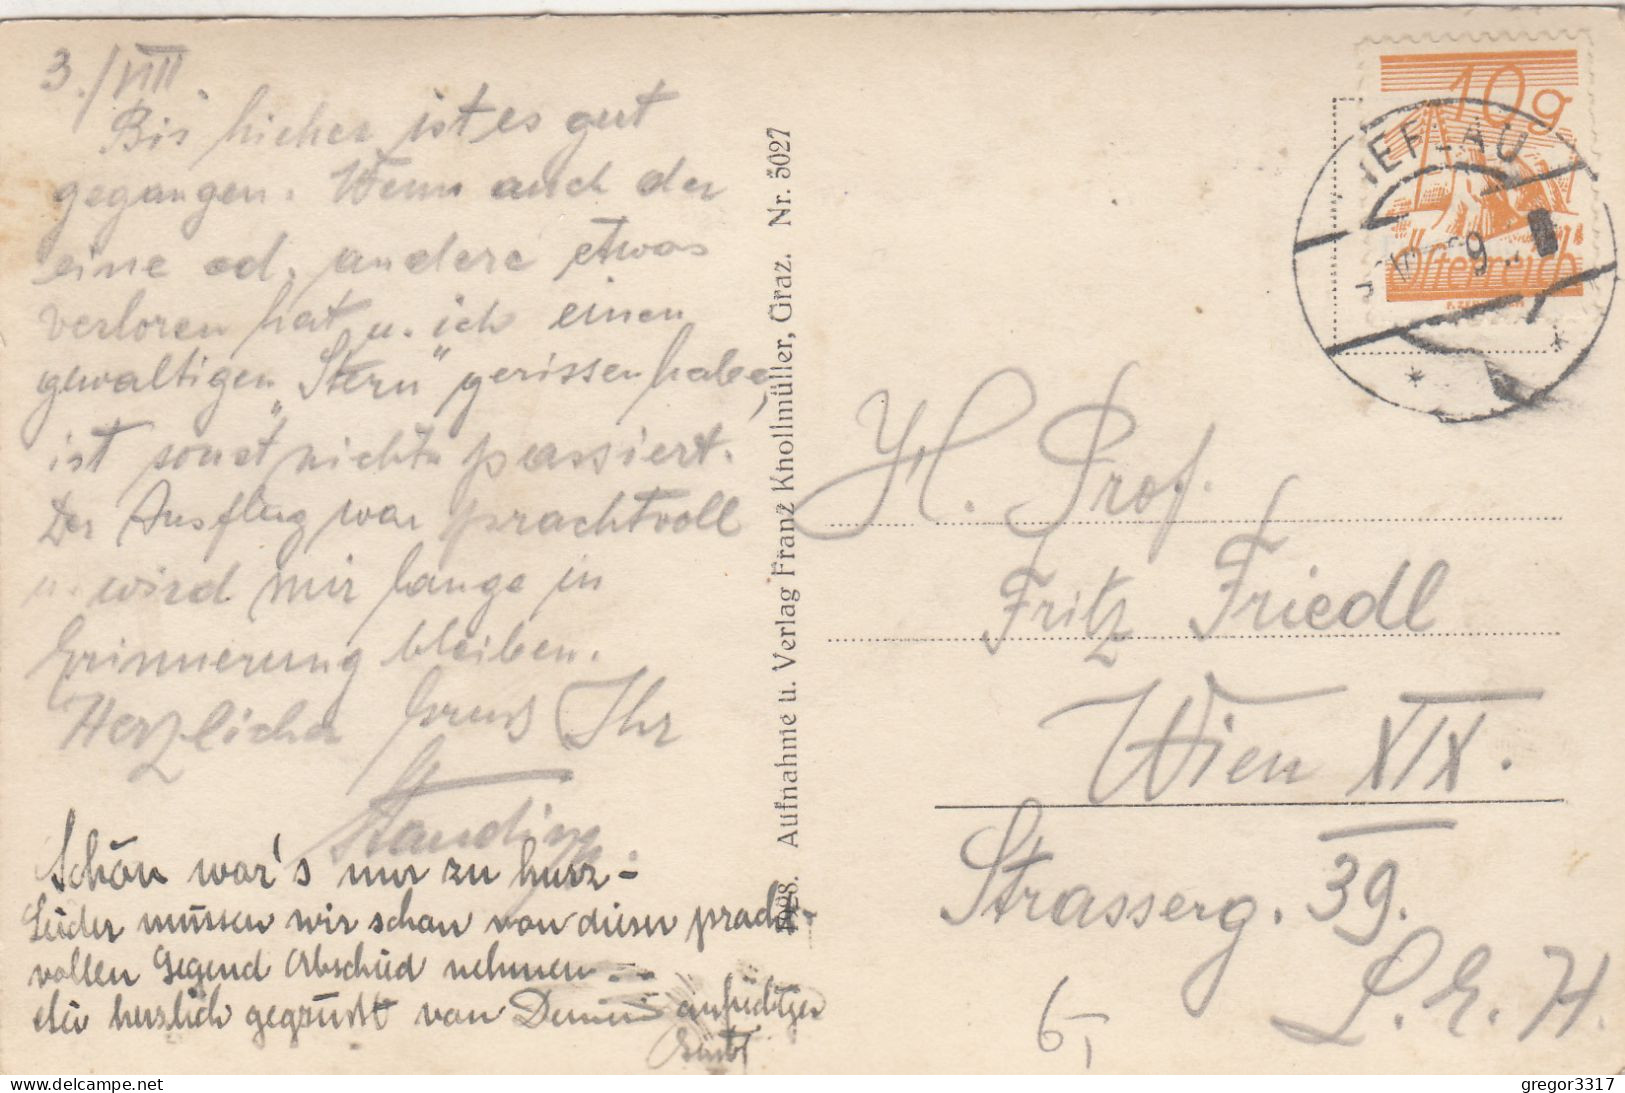 3./VIII.
Bis hieher ist es gut
gegangen. Wenn auch der
eine od. andere etwas
verloren hat u. ich einen
gewaltigen „Stern" gerissen habe,
ist sonst nichts passiert.
Der Ausflug war prachtvoll
u. wird mir lange in
Erinnerung bleiben.
Herzlicher Gruss Ihr
Schön war's nur zu kurz -
Leider müssen wir schon von dieser pracht-
vollen Gegend Abschied nehmen.
herzlich gegrüßt von aufrichtiger
1928. Aufnahme u. Verlag Franz Knollmüller, Graz. Nr. 5027
10g
Österreich
IEFLAU
H. Prof.
Fritz Friedl
Wien XIX.
Strasserg. 39.
L. E. H.
6,-
delcampe.net
gregor3317